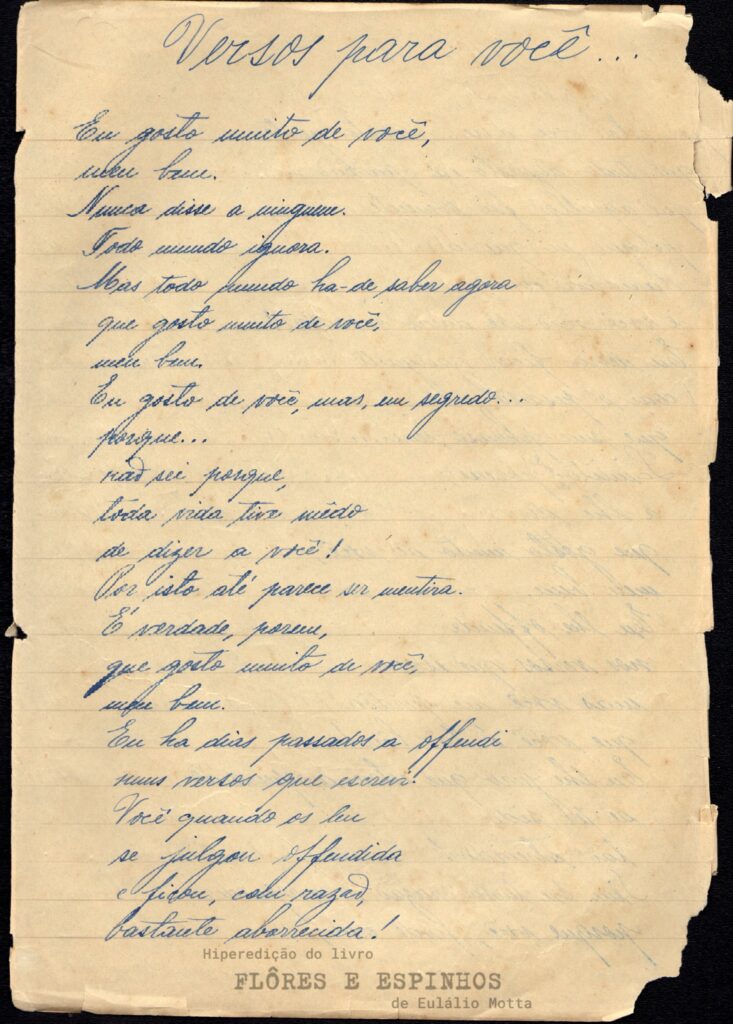 Versos para você...
Eu gosto muito de você,
meu bem.
Nunca disse a ninguem.
Todo mundo ignora.
Mas todo mundo ha-de saber agora
que gosto muito de você,
meu bem.
Eu gosto de você, mas, em segredo...
porque...
não sei porque,
tôda vida tive mêdo
de dizer a você!
Por isto até parece ser mentira.
É verdade, porem,
que gosto muito de você,
meu bem.
Eu ha dias passados a offendi
nuns versos que escrevi!
Você quando os leu
se julgou offendida
e ficou, com razaõ,
bastante aborrecida!
Hiperedição do livro
FLÔRES E ESPINHOS
de Eulálio Motta